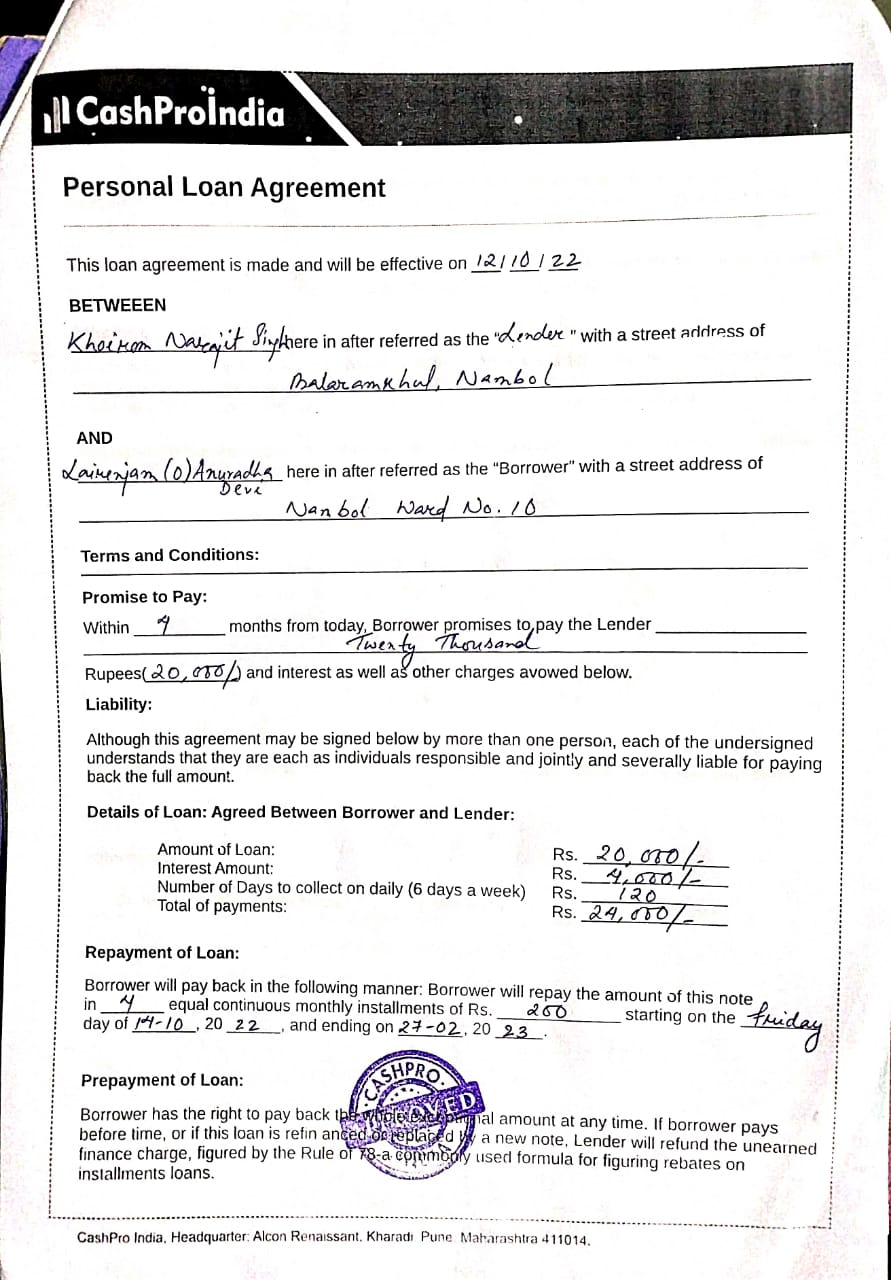 CashProIndia
Personal Loan Agreement
This loan agreement is made and will be effective on 12/10/22
BETWEEEN
Khoirom Narajit Singh here in after referred as the "Lender" with a street address of
Balaramkhul, Nambol
AND
Lairenjam (O) Anuradha here in after referred as the "Borrower" with a street address of
Devi
Nanbol Ward No. 10
Terms and Conditions:
Promise to Pay:
Within 4 months from today, Borrower promises to pay the Lender
Twenty Thousand
Rupees(20,000/-) and interest as well as other charges avowed below.
Liability:
Although this agreement may be signed below by more than one person, each of the undersigned
understands that they are each as individuals responsible and jointly and severally liable for paying
back the full amount.
Details of Loan: Agreed Between Borrower and Lender:
Amount of Loan: Rs. 20,000/-
Interest Amount: Rs. 4,000/-
Number of Days to collect on daily (6 days a week) Rs. 120
Total of payments: Rs. 24,000/-
Repayment of Loan:
Borrower will pay back in the following manner: Borrower will repay the amount of this note
in 4 equal continuous monthly installments of Rs. 200 starting on the Friday
day of 14-10, 20 22, and ending on 27-02, 20 23.
Prepayment of Loan:
CASHPRO
Borrower has the right to pay back the whole amount at any time. If borrower pays
before time, or if this loan is refin anced or replaced by a new note, Lender will refund the unearned
finance charge, figured by the Rule of 78-a commonly used formula for figuring rebates on
installments loans.
CashPro India, Headquarter: Alcon Renaissant, Kharadi Pune Maharashtra 411014.